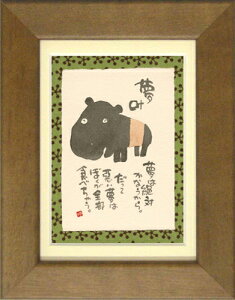 夢叶
夢は絶対
かなうから。
だって
悪い夢は
ぼくが全部
食べちゃう。